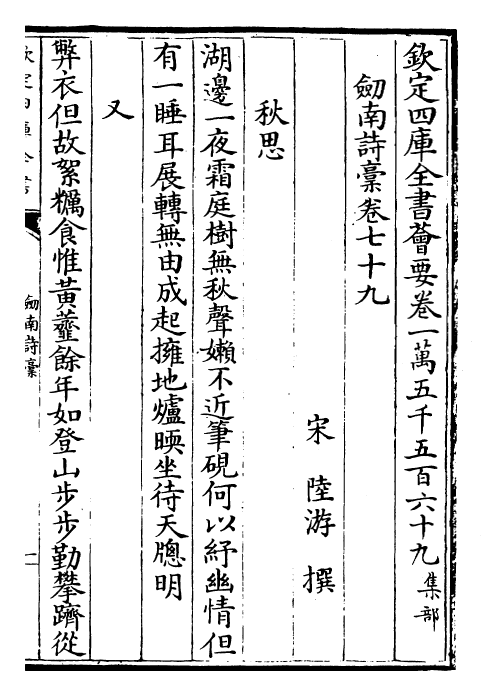 欽定四庫全書薈要卷一萬五千五百六十九集部
劒南詩藁卷七十九
宋陸游撰
秋思
湖邊一夜霜庭樹無秋聲嬾不近筆硯何以紓幽情但
有一睡耳展轉無由成起擁地爐暎坐待天牕明
又
弊衣但故絮糲食惟黃虀餘年如登山步步勤攀躋從
劒南詩藁
一